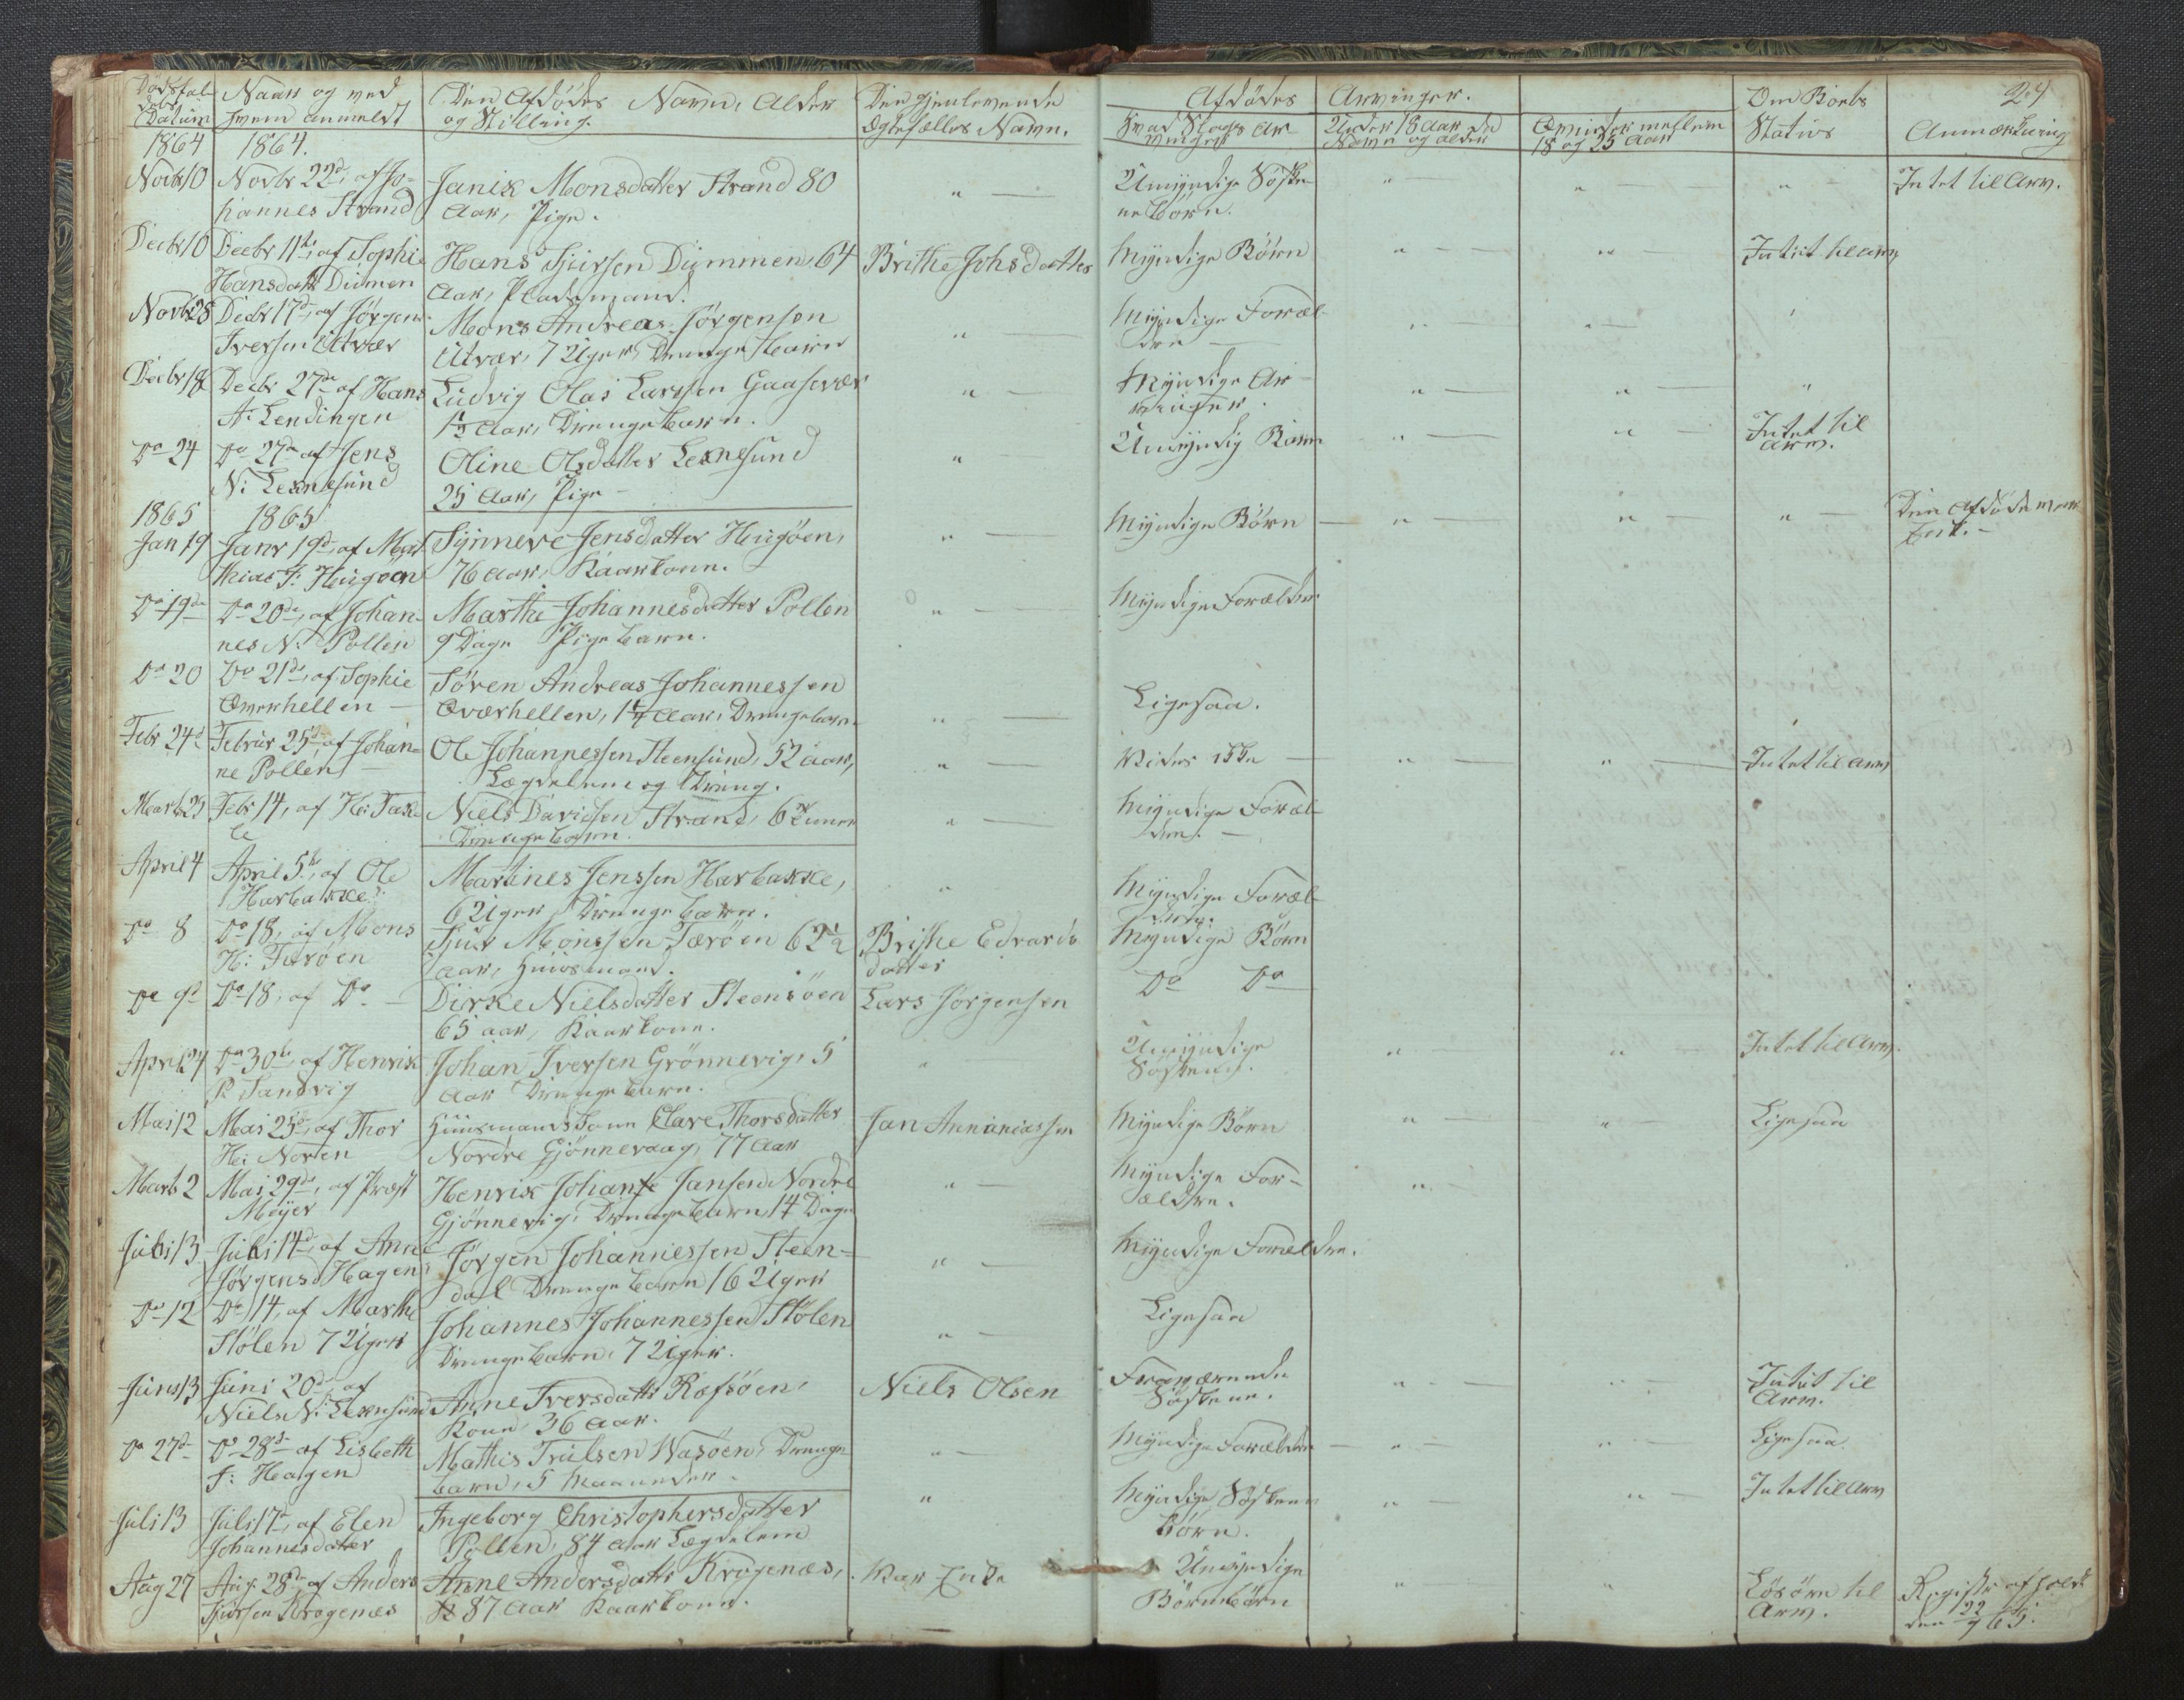 Dødsfal-
dets
Datum
Naar og ved
Hvem anmeldt
Den Afdødes Navn, Alder
og Stilling.
Den gjenlevende
Ægtefælles Navn.
Afdødes Arvinger.
Hvad Slags Ar-
vinger
Under 18 Aar de
Navn og Alder
Om Boets
Status
Anmærkning
24
18 og 25 Aar
1864 1864.
Novbr 10 Novbr 22d, af Jo-
hannes Strand
Janik Monsdatter Strand 80
Aar, Pige.
Umyndige Søsken-
nebörn.
Intet til Arv.
Decbr 10 Decbr 11te, af Sophie
Hansdattr Dumen
Hans Sjursen Dummen, 64
Aar, Pladsmand.
Brithe Johsdatter
Myndige Börn
Intet til Arv
Novbr 28 Decbr 17de, af Jörgen
Iversen Utvær
Mons Andreas Jörgensen
Utvær, 7 Uger, Drengebarn
Myndige Foræl-
dre
Decbr 18 Decbr 27de af Hans
A. Lendingen
Ludvig Olai Larssen Gaasevær
1½ Aar, Drengebarn.
Myndige Ar-
vinger.
Do 24 Do 27de af Jens
N: Leknesund
Oline Olsdatter Leknesund
25 Aar, Pige
Umyndig Barn
Intet til
Arv.
1865 1865
Jan 19 Janr 19de, af Mat
thias J: Hugöen
Synneve Jensdatter Hugöen,
76 Aar, Kaarkone.
Myndige Börn
Den Afdöde var
Enke.
Do 19de Do 20de, af Johan-
nes N: Pollen
Marthe Johannesdatter Pollen
9 Dage Pigebarn.
Myndige Forældre
Do 20 Do 21de, af Sophie
Qværhellen
Sören Andreas Johannessen
Qværhellen, 1¼ Aar, Drengebarn
Ligesaa.
Febr 24d Februr 25d, af Johan-
ne Pollen
Ole Johannessen Steensund, 52 Aar,
Lægdslem og Dreng.
Vides ikke
Intet til Arv
Marts 23 Febr 14, af H: Takle
Niels Davidsen Strand, 6
Drengebarn.
Myndige Foræl-
dre.
April 4 April 5te, af Ole
Harbakke
Martines Jenssen Harbakke,
6 Uger, Drengebarn.
Myndige Foræl-
dre.
Do 8 Do 18, af Mons
H: Færöen
Sjur Monssen Færöen 62½
Aar, Huusmand.
Brithe Edvards
datter
Myndige Börn
Do 9d Do 18, af Do
Dirke Nielsdatter Steensöen
65 Aar, Kaarkone.
Lars Jörgensen
Do Do
April 24 Do 30te, af Henrik
P. Sandvig
Johan Iversen Grönnevig, 5
Aar Drengebarn.
Umyndige
Söskende.
Intet til Arv.
Mai 12 Mai 25de, af Thor
H: Noreen
Huusmandskone Clare Thorsdatter
Nordre Gjönnevaag, 77 Aar
Jan Annaniassen
Myndige Börn
Ligesaa
Marts 2 Mai 29de, af Præst
Meyer
Henrik Johan Jansen Nordre
Gjönnevig, Drengebarn 14 Dage
Myndige For-
ældre.
Juli 13 Juli 14d, af Anne
Jörgensd Hagen
Jörgen Johannessen Steen-
dal Drengebarn 16 Uger
Myndige Forældre.
Do 12 Do 14, af Marthe
Stölen 7 Uger
Johannes Johannessen Stölen
Drengebarn, 7 Uger.
Ligesaa
Juni 13 Juni 20de af
Niels N: Leknesund
Anne Iversdattr Ræfsöen,
Kone, 36 Aar.
Niels Olsen
Fraværende
Söskene.
Intet til
Arv.
Do 27d Do 28d af Lisbeth
J: Hagen
Mathis Trulsen Wasöen, Drenge-
barn, 5 Maaneder.
Myndige Forældre
Ligesaa
Juli 13 Juli 17d, af Elen
Johannesdatter
Ingeborg Christophersdatter
Pollen, 84 Aar Lægdslem
Myndige Söskene
börn.
Intet til Arv
Aug 27 Aug: 28de, af Anders
Sjursen Krogenæs
Anne Andersdattr Krogenæs,
87 Aar Kaarkone.
Var Enke
Umyndige
Börnebörn
Lösöre til
Arv.
Registr. afholdt
den 22/9 65.